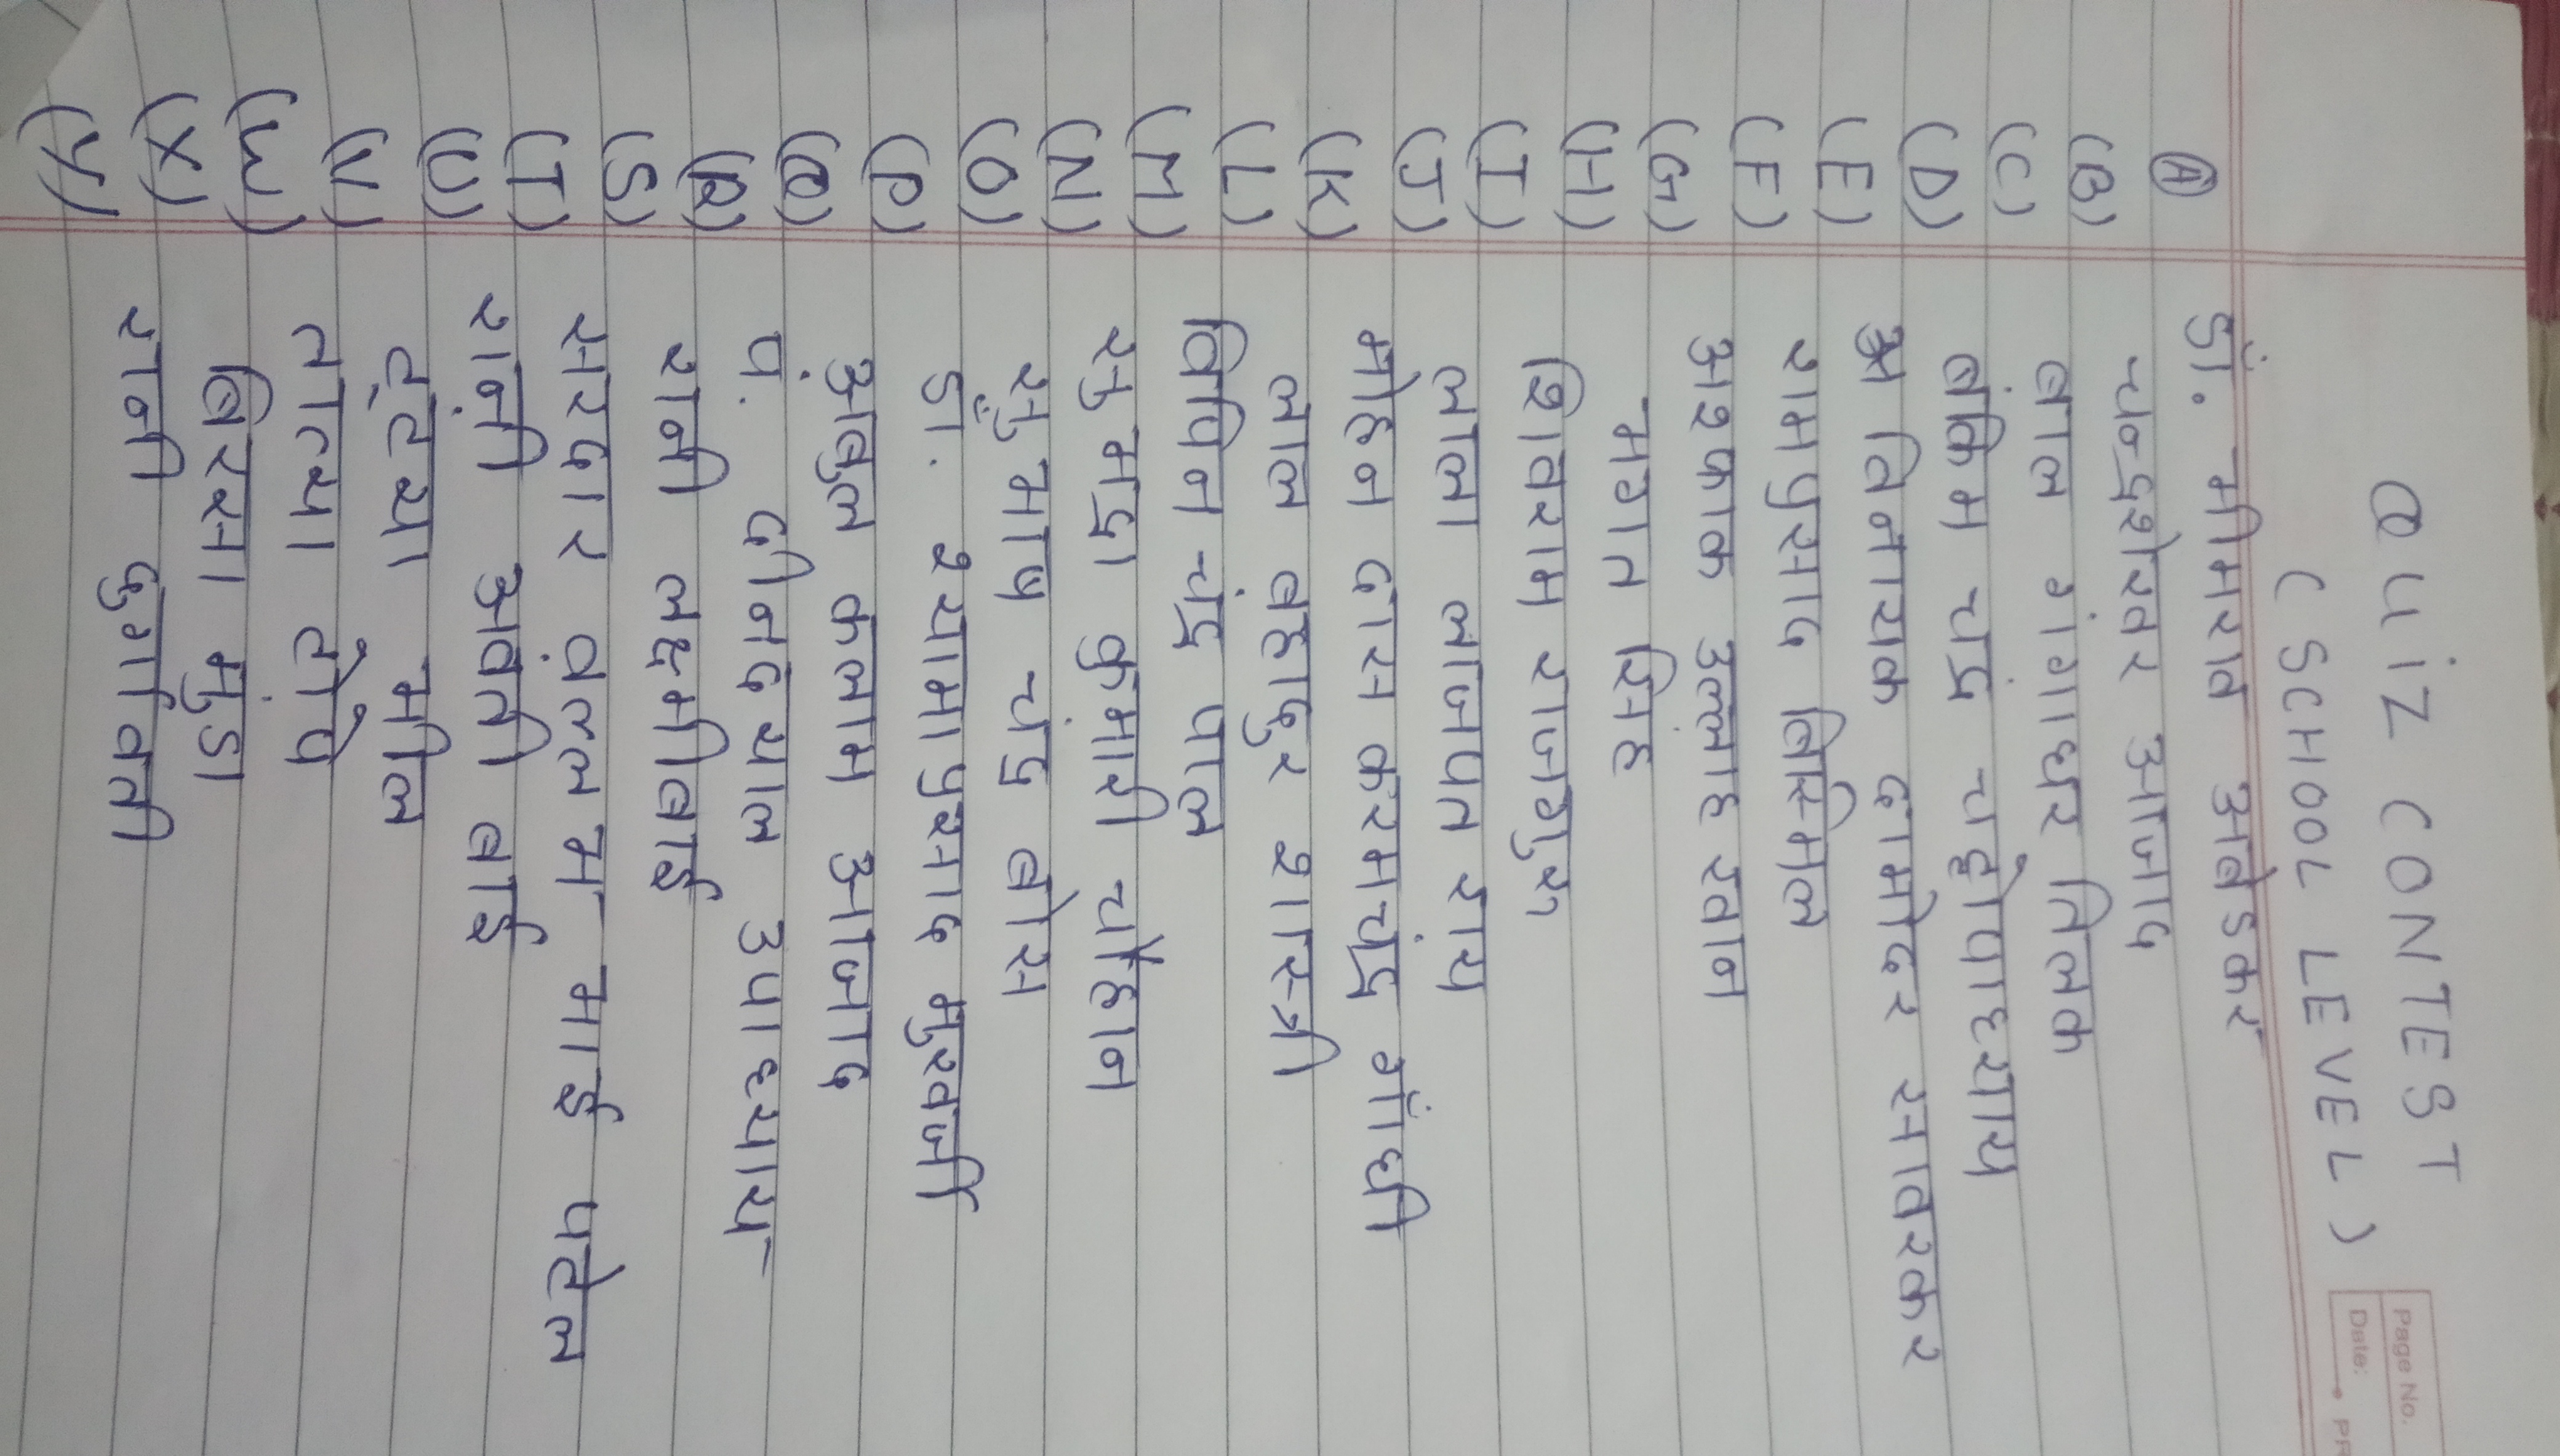 Page No.
Date:
QUIZ CONTEST
(SCHOOL LEVEL)
(A) डॉ. भीमराव अंबेडकर
(B) चन्द्रशेखर आजाद
(C) बाल गंगाधर तिलक
(D) बंकिम चंद्र चट्टोपाध्याय
(E) विनायक दामोदर सावरकर
(F) रामप्रसाद बिस्मिल
(G) अशफाक उल्लाह खान
(H) भगत सिंह
(I) शिवराम राजगुरु
(J) लाला लाजपत राय
(K) मोहन दास करमचंद्र गाँधी
(L) लाल बहादुर शास्त्री
(M) बिपिन चंद्र पाल
(N) सुभद्रा कुमारी चौहान
(O) सुभाष चंद्र बोस
(P) डा. श्यामाप्रसाद मुखर्जी
(Q) अबुल कलाम आजाद
(R) पं. दीनदयाल उपाध्याय
(S) रानी लक्ष्मीबाई
(T) सरदार वल्लभ भाई पटेल
(U) रानी अवंती बाई
(V) टंट्या भील
(W) तात्या टोपे
(X) बिरसा मुंडा
(Y) रानी दुर्गावती